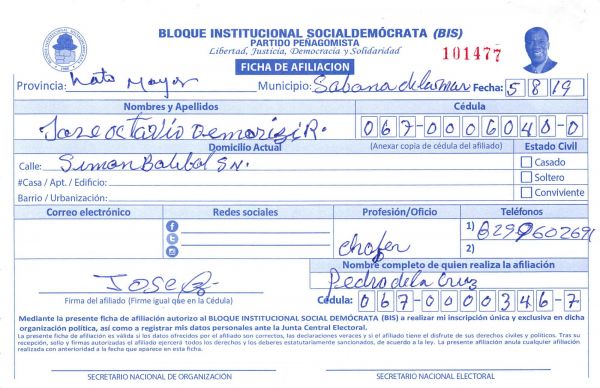 BLOQUE INSTITUCIONAL SOCIALDEMÓCRATA (BIS)
PARTIDO PEÑAGOMISTA
Libertad, Justicia, Democracia y Solidaridad
101477
FICHA DE AFILIACION
Provincia: Hato Mayor Municipio: Sabana de la mar Fecha: 5 8 19
Nombres y Apellidos Cédula
Jose octavio Demorizi R. 067-0006048-0
Domicilio Actual (Anexar copia de cédula del afiliado) Estado Civil
Calle: Simon Bolibal SN. Casado
#Casa / Apt. / Edificio: Soltero
Barrio / Urbanización: Conviviente
Correo electrónico Redes sociales Profesión/Oficio Teléfonos
chofer 1) 8299602691
2)
Nombre completo de quien realiza la afiliación
Jose Pedro de la Cruz
Firma del afiliado (Firme igual que en la Cédula) Cédula: 067-0000346-7
Mediante la presente ficha de afiliación autorizo al BLOQUE INSTITUCIONAL SOCIAL DEMÓCRATA (BIS) a realizar mi inscripción única y exclusiva en dicha
organización política, así como a registrar mis datos personales ante la Junta Central Electoral.
La presente ficha de afiliación es válida si los datos ofrecidos por el afiliado son correctos, las declaraciones veraces y si el afiliado tiene el disfrute de sus derechos civiles y políticos. Tras su
recepción, sello y firmas autorizadas el afiliado ejercerá todos los derechos y los deberes estatutariamente sancionados, de acuerdo a la ley. La presente afiliación anula cualquier afiliación
realizada con anterioridad a la fecha que aparece en esta ficha.
SECRETARIO NACIONAL DE ORGANIZACIÓN SECRETARIO NACIONAL ELECTORAL